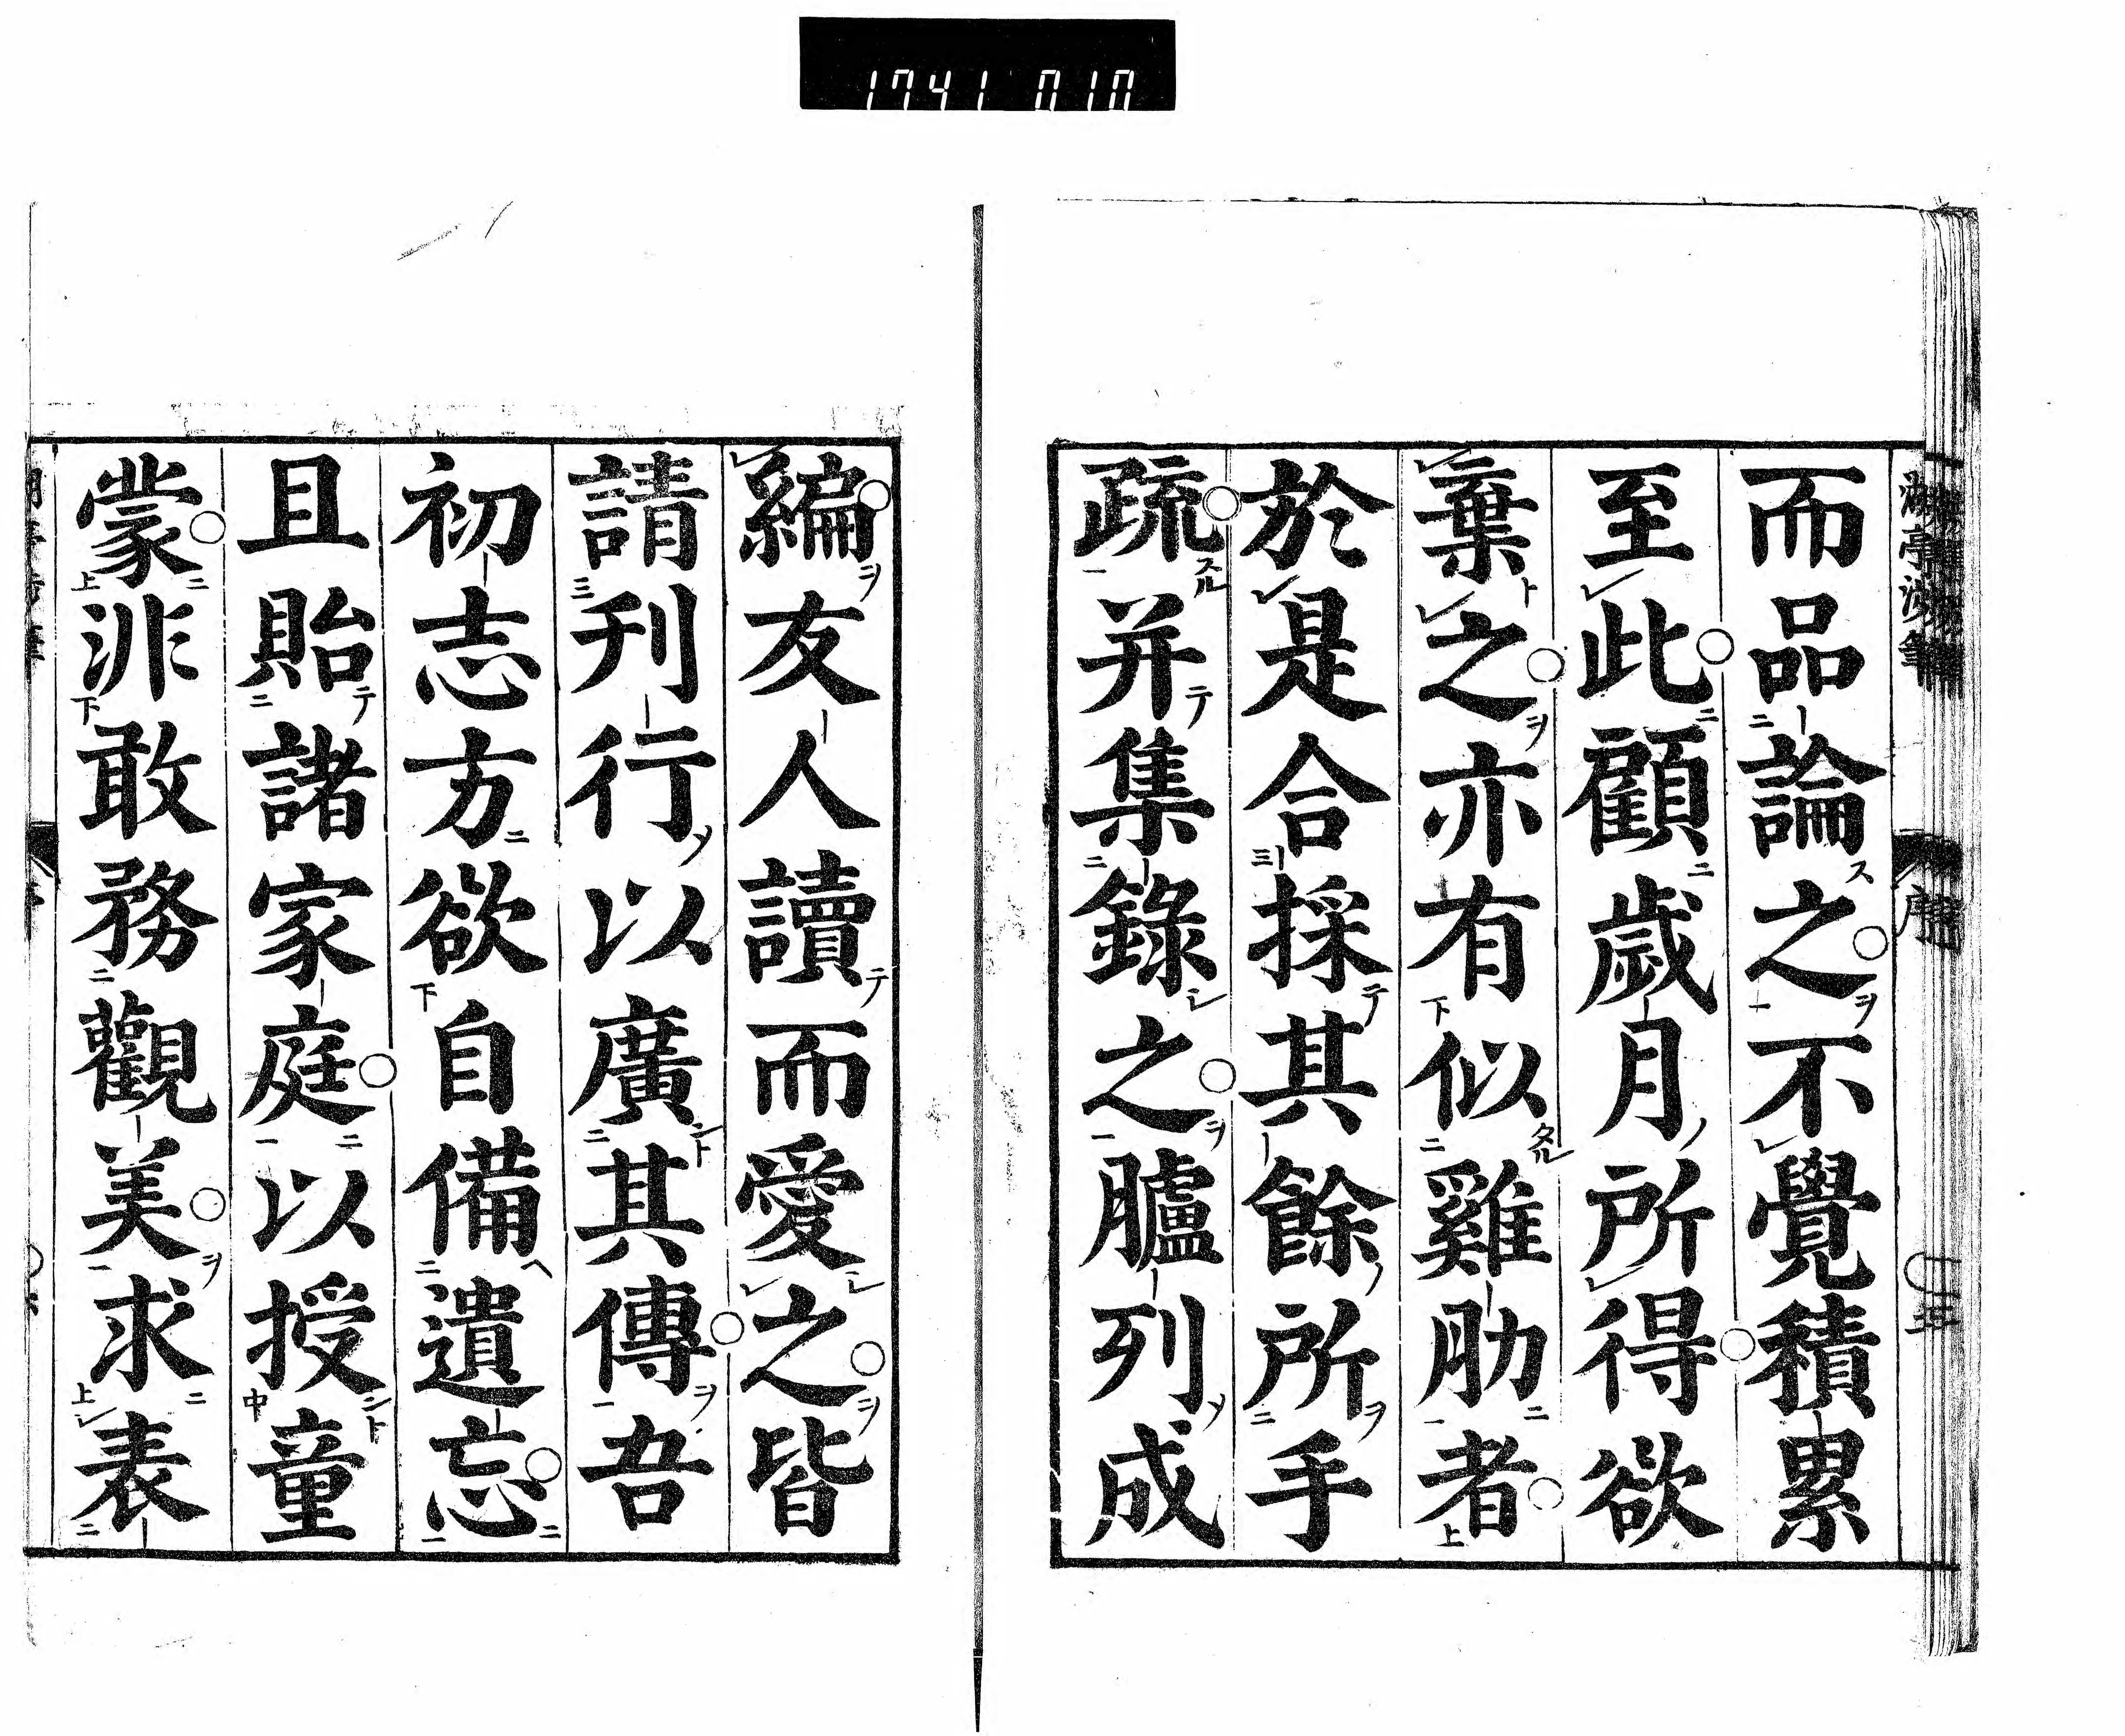 1741 010
而品論之不覺積累
至此顧歲月所得欲
棄之亦有似雞肋者
於是合採其餘所手
疏并集錄之臚列成
編友人讀而愛之皆
請刊行以廣其傳吾
初志方欲自備遺忘
且貽諸家庭以授童
蒙非敢務觀美求表
序